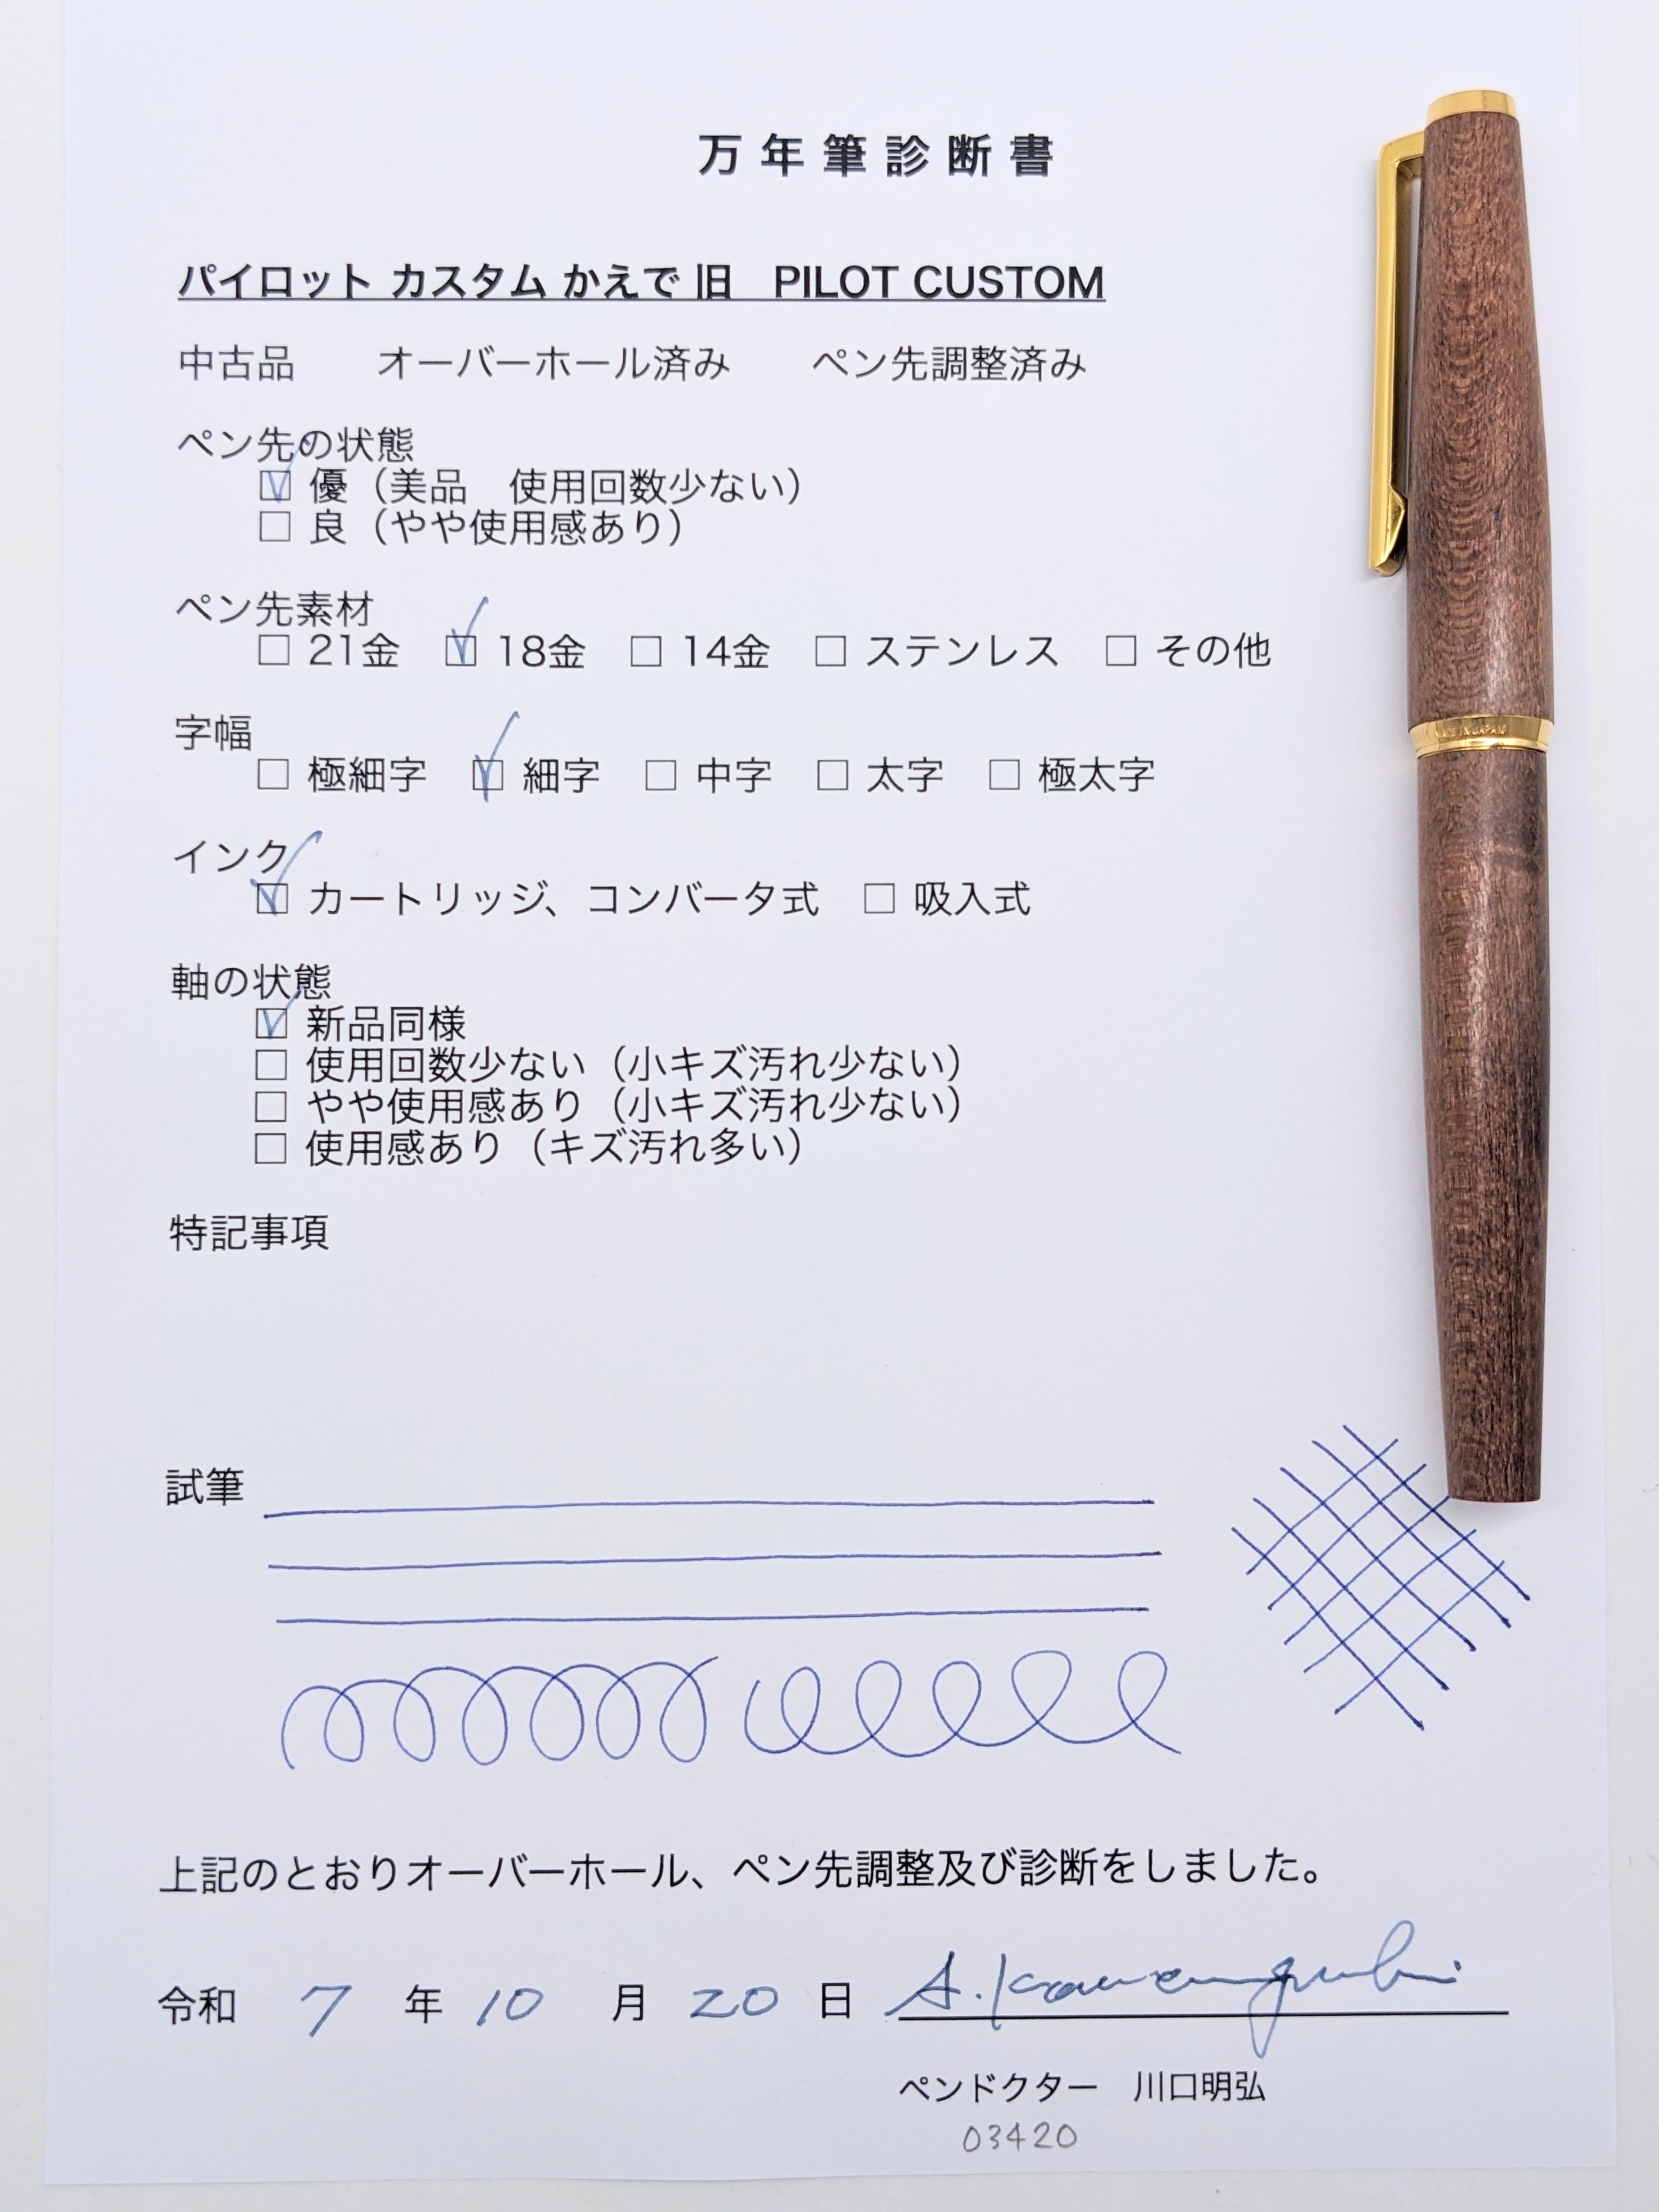 万年筆診断書
パイロット カスタム かえで 旧　PILOT CUSTOM
中古品　　オーバーホール済み　　ペン先調整済み
ペン先の状態
☑ 優（美品　使用回数少ない）
☐ 良（やや使用感あり）
ペン先素材
☐ 21金　☑ 18金　☐ 14金　☐ ステンレス　☐ その他
字幅
☐ 極細字　☑ 細字　☐ 中字　☐ 太字　☐ 極太字
インク
☑ カートリッジ、コンバータ式　☐ 吸入式
軸の状態
☑ 新品同様
☐ 使用回数少ない（小キズ汚れ少ない）
☐ やや使用感あり（小キズ汚れ少ない）
☐ 使用感あり（キズ汚れ多い）
特記事項
試筆
上記のとおりオーバーホール、ペン先調整及び診断をしました。
令和 7 年 10 月 20 日 A. Kawaguchi
ペンドクター　川口明弘
03420